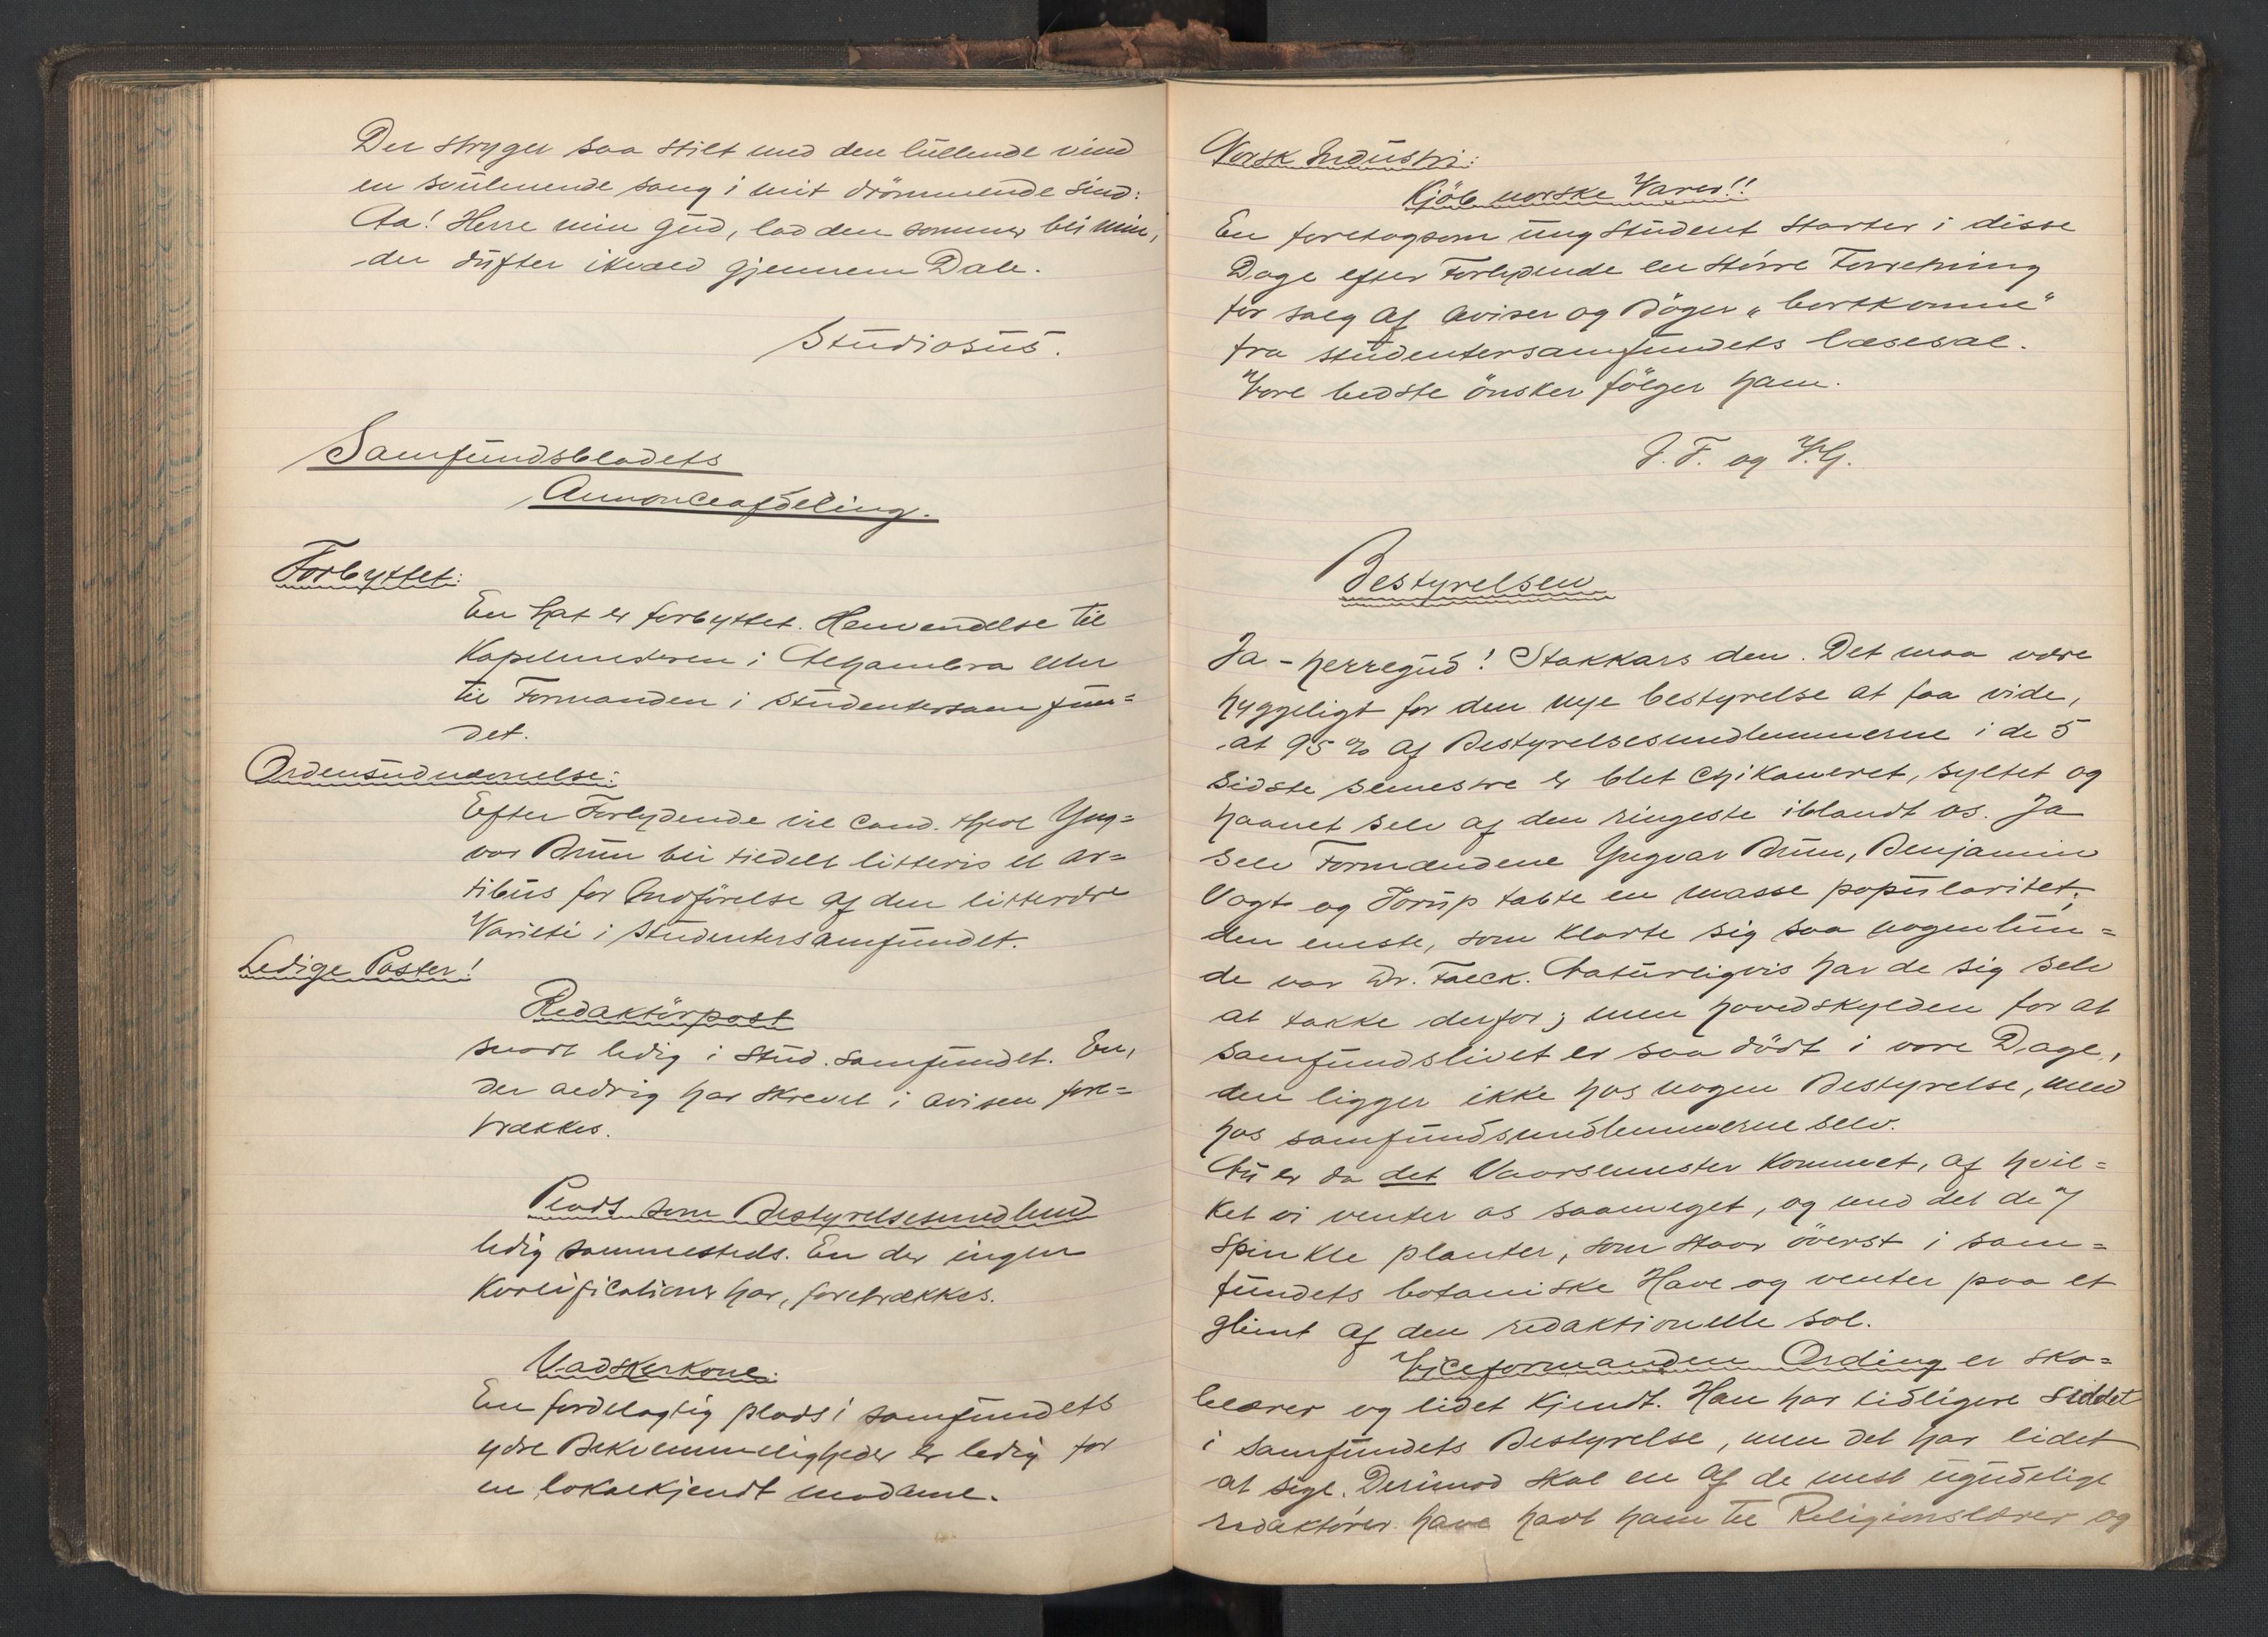 Der stryger saa stilt med den lullende vind
en svulmende sang i mit drömmende sind:
Aa! Herre min gud, lad den sommer bli min,
der dufter ikvæld gjennem Dale.
Studiosus.
Samfundsbladets
Annonceafdeling.
Forbyttet:
En hat er forbyttet. Henvendelse til
Kapelmesteren i Alhambra eller
til Formanden i studentersamfun=
det.
Ordensudnævnelse:
Efter Forlydende vil cand. theol Yng=
var Brun bli tiedelt litteris et ar=
tibus for Indförelse af den litterære
Varieté i Studentersamfundet.
Ledige Poster!
Redaktörpost
snart ledig i Stud. samfundet. En,
der aldrig har skrevet i avisen fore=
trækkes.
Plads som Bestyrelsesmedlem
ledig sammesteds. En der ingen
Kvalifications har, foretrækkes.
Vadskerkone:
En fordelagtig plads i samfundets
ydre Bekvemmeligheder er ledig for
en lokalkjendt madame.
Norsk Industri:
Kjöb norske Varer!!
En foretagsom ung Student starter i disse
Dage efter Forlydende en större Forretning
for salg af aviser og Böger "bortkomne"
fra studentersamfundets læsesal.
Vore bedste önsker fölger ham.
J. F. og V. G.
Bestyrelsen
Ja - herregud! Stakkars den. Det maa være
hyggeligt for den nye bestyrelse at faa vide,
at 95 % af Bestyrelsesmedlemmerne i de 5
sidste semestre er blet chikaneret, syltet og
haanet selv af den ringeste iblandt os. Ja
selv Formændene Yngvar Brun, Benjamin
Vogt og Torup tabte en masse popularitet;
den eneste, som klarte sig saa nogenlun=
de var Dr. Falck. Naturligvis har de sig selv
at takke derfor; men hovedskylden for at
samfundslivet er saa dödt i vore Dage,
den ligger ikke hos nogen Bestyrelse, men
hos samfundsmedlemmerne selv.
Nu er da det Vaarsemester kommet, af hvil=
ket vi venter os saameget, og med det de 7
spinkle planter, som staar överst i sam=
fundets botaniske Have og venter paa et
glimt af den redaktionelle sol.
Viceformanden Ording er sko=
lelærer og lidet kjendt. Han har tidligere siddet
i samfundets Bestyrelse, men det har lidet
at sige. Derimod skal en af de mest ugudelige
redaktörer have havt ham til Religionslærer og